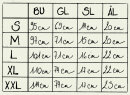 BU GL SL ÁL
S 95cm 69cm 14cm 20cm
M 97cm 71cm 15cm 20cm
L 101cm 71cm 16cm 22cm
XL 110cm 74cm 17cm 22cm
XXL 74cm 17cm 23cm